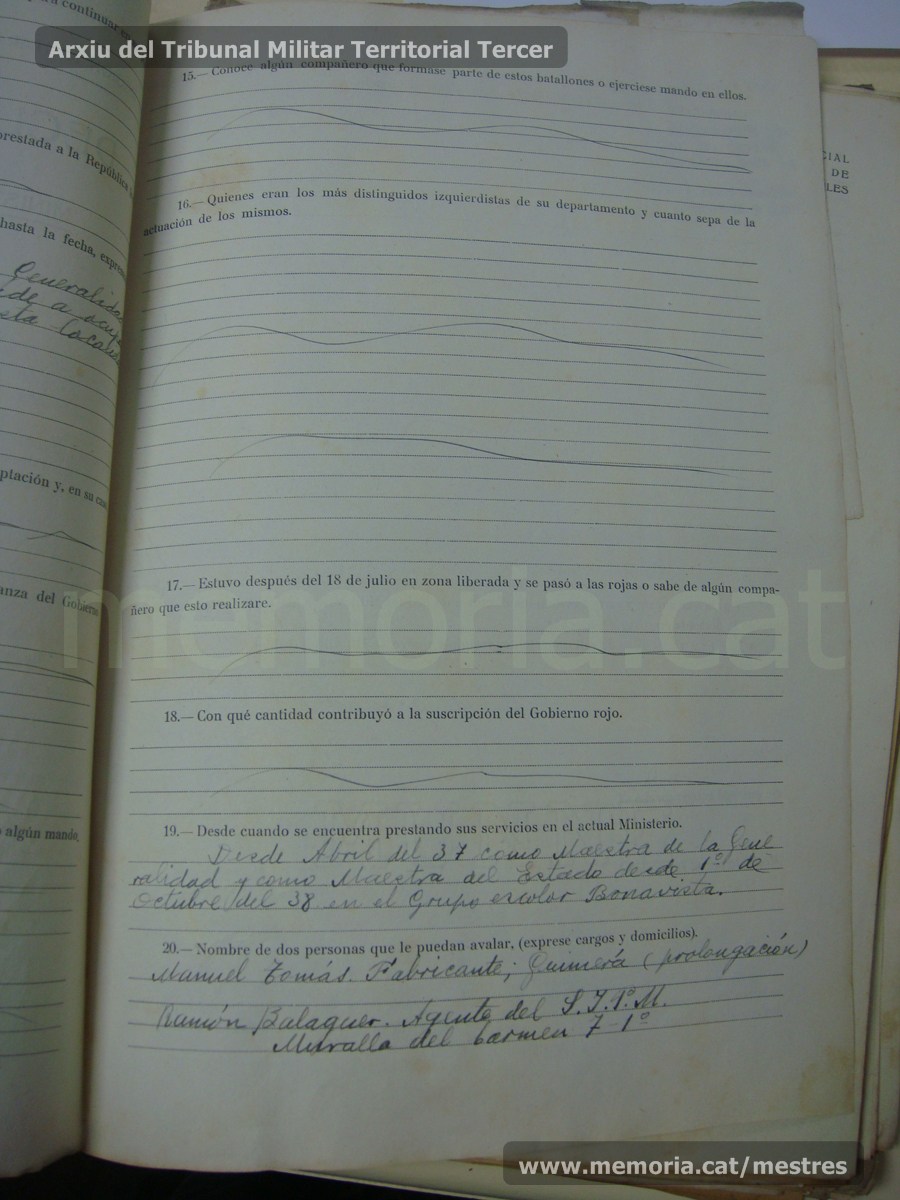 Arxiu del Tribunal Militar Territorial Tercer
a continuar
prestada a la República
hasta la fecha,
Generalidad
ptación y, en su caso
anza del Gobierno
algún mando,
CIAL
DE
LES
15.— Conoce algún compañero que formase parte de estos batallones o ejerciese mando en ellos.
16.— Quienes eran los más distinguidos izquierdistas de su departamento y cuanto sepa de la
actuación de los mismos.
17.— Estuvo después del 18 de julio en zona liberada y se pasó a las rojas o sabe de algún compa-
ñero que esto realizare.
memoria.cat
18.— Con qué cantidad contribuyó a la suscripción del Gobierno rojo.
19.— Desde cuando se encuentra prestando sus servicios en el actual Ministerio.
Desde Abril del 37 como Maestra de la Gene
ralidad y como Maestra del Estado desde 1º de
Octubre del 38 en el Grupo escolar Bonavista.
20.— Nombre de dos personas que le puedan avalar, (exprese cargos y domicilios).
Manuel Tomás. Fabricante; Guimerá (prolongación)
Ramón Balaguer. Agente del
Muralla del Carmen 7 1º
www.memoria.cat/mestres